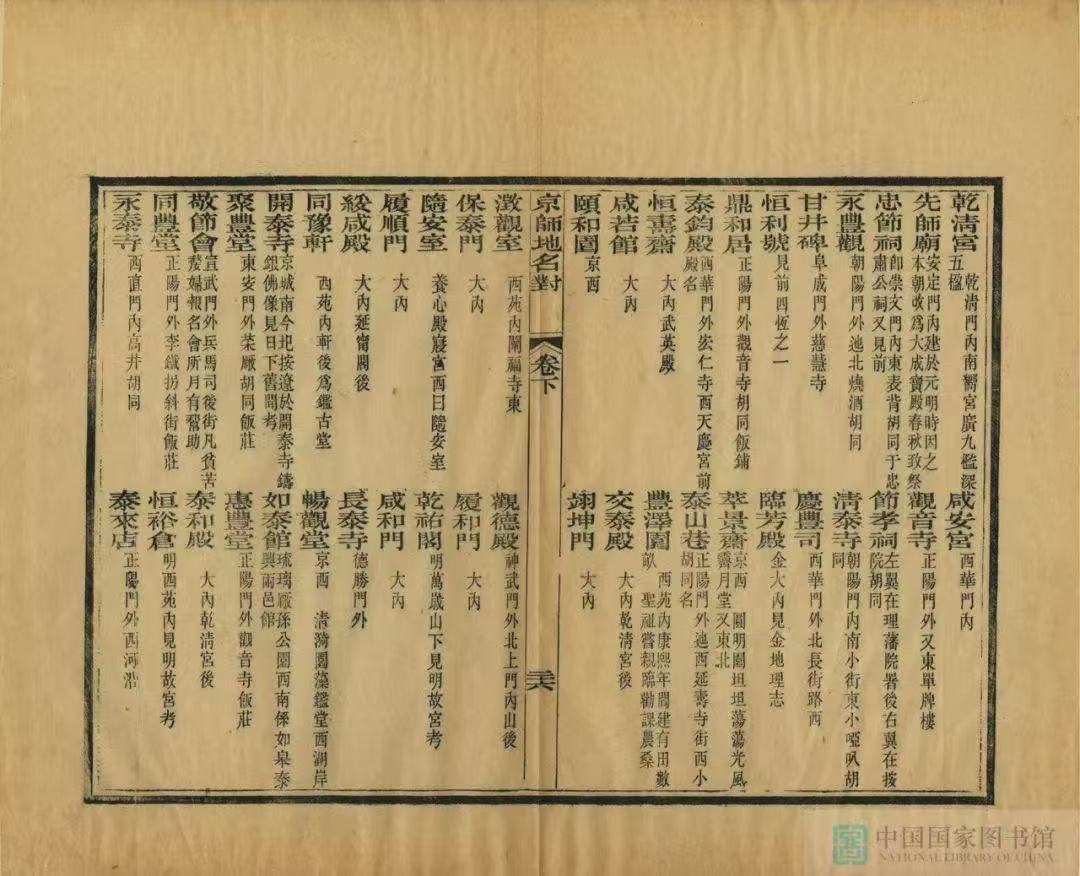 乾清宮 乾清門內南嚮宮廣九楹深五楹 咸安宮 西華門內
先師廟 安定門內建於元明時因之本朝改爲大成寶殿春秋致祭 觀音寺 正陽門外又東單牌樓
忠節祠 卽崇文門內東表背胡同于忠肅公祠又見前 節孝祠 左翼在理藩院署後右翼在按院胡同
永豐觀 朝陽門外迤北燒酒胡同 清泰寺 朝陽門內南小街東小啞叭胡同
甘井碑 阜成門外慈慧寺 慶豐司 西華門外北長街路西
恒利號 見前四恆之一 臨芳殿 金大內見金地理志
鼎和居 正陽門外觀音寺胡同飯鋪 萃景齋 京西 圓明園坦坦蕩蕩光風霽月堂又東北
泰鈞殿 西華門外安仁寺西天慶宮前殿名 泰山巷 正陽門外迤西延壽寺街西小胡同名
恒壽齋 大內武英殿 豐澤園 西苑內康熙年間建有田數畝 聖祖嘗親臨勸課農桑
咸若館 大內 交泰殿 大內乾清宮後
頤和園 京西 翊坤門 大內
京師地名對 卷下 二十六
澂觀室 西苑內闡福寺東 觀德殿 神武門外北上門內山後
保泰門 大內 履和門 大內
隨安室 養心殿寢宮西曰隨安室 乾祐閣 明萬歲山下見明故宮考
履順門 大內 咸和門 大內
綏咸殿 大內延甯閣後 長泰寺 德勝門外
同豫軒 西苑內軒後爲鑑古堂 暢觀堂 京西 清漪園藻鑑堂西湖岸
開泰寺 京城南今圮按遼於開泰寺鑄銀佛像見日下舊聞考 如泰館 琉璃厰孫公園西南係如皋泰興兩邑館
聚豐堂 東安門外菜厰胡同飯莊 惠豐堂 正陽門外觀音寺飯莊
敬節會 宣武門外兵馬司後街凡貧苦嫠婦報名會所月有幫助 泰和殿 大內乾清宮後
同豐堂 正陽門外李鐵拐斜街飯莊 恒裕倉 明西苑內見明故宮考
永泰寺 西直門內高井胡同 泰來店 正陽門外西河沿
中国国家图书馆
NATIONAL LIBRARY OF CHINA